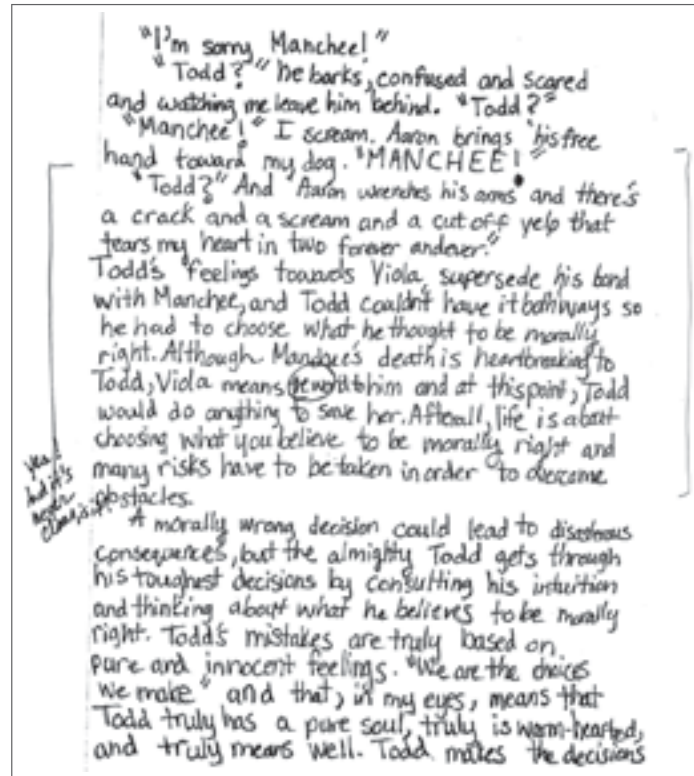 "I'm sorry Manchee!"
"Todd?" he barks, confused and scared
and watching me leave him behind. "Todd?"
"Manchee!" I scream. Aaron brings his free
hand toward my dog. "MANCHEE!"
"Todd?" And Aaron wrenches his arms and there's
a crack and a scream and a cut off yelp that
tears my heart in two forever andever."
Todd's feelings towards Viola, supersede his bond
with Manchee, and Todd couldn't have it both ways so
he had to choose what he thought to be morally
right. Although Manchee's death is heartbreaking to
Todd, Viola means to him and at this point, Todd
would do anything to save her. Afterall, life is about
choosing what you believe to be morally right and
many risks have to be taken in order to overcome
obstacles.
yes!
but it's
never
A morally wrong decision could lead to disastrous
consequences, but the almighty Todd gets through
his toughest decisions by consulting his intuition
and thinking about what he believes to be morally
right. Todd's mistakes are truly based on
pure and innocent feelings. "We are the choices
we make" and that, in my eyes, means that
Todd truly has a pure soul, truly is warm-hearted,
and truly means well. Todd makes the decisions